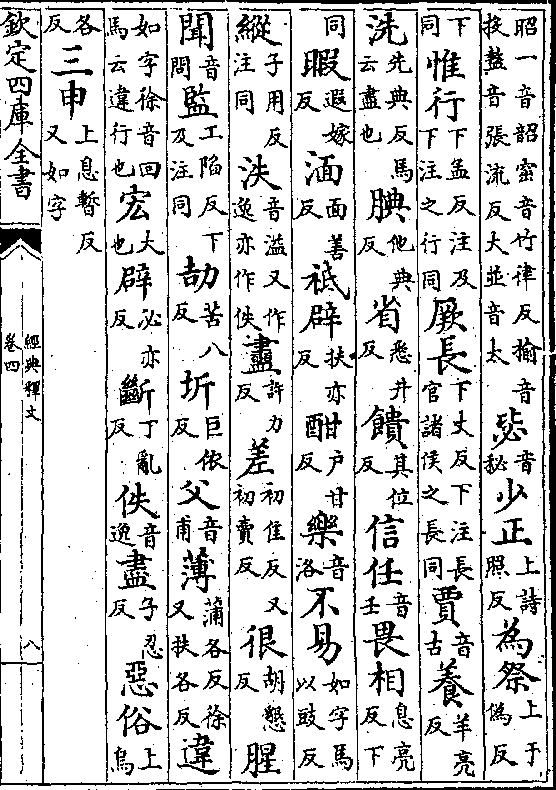 昭一音韶宻音竹律反揄音投盩音張流反大並音太毖音祕少正上詩照反為祭上于偽反
下同惟行下孟反注及下注之行同厥長下丈反下注長官諸侯之長同賈音古養羊亮反
洗先典反馬云盡也腆他典反省悉井反饋其位反信任音壬畏相息亮反下
同暇遐嫁反湎面善反祗辟扶亦反酣户甘反樂音洛不易如字馬以豉反
縱子用反注同泆音溢又作逸亦作佚衋許力反差初佳反又初賣反很胡懇反腥
聞音問監工陷反下及注同劼苦八反圻巨依反父音甫薄蒲各反徐又扶各反違
如字徐音回馬云違行也宏大也辟必亦反斷丁亂反佚音逸盡子忍反惡俗上烏
各反三申上息暫反又如字
欽定四庫全書
經典釋文
卷四
八